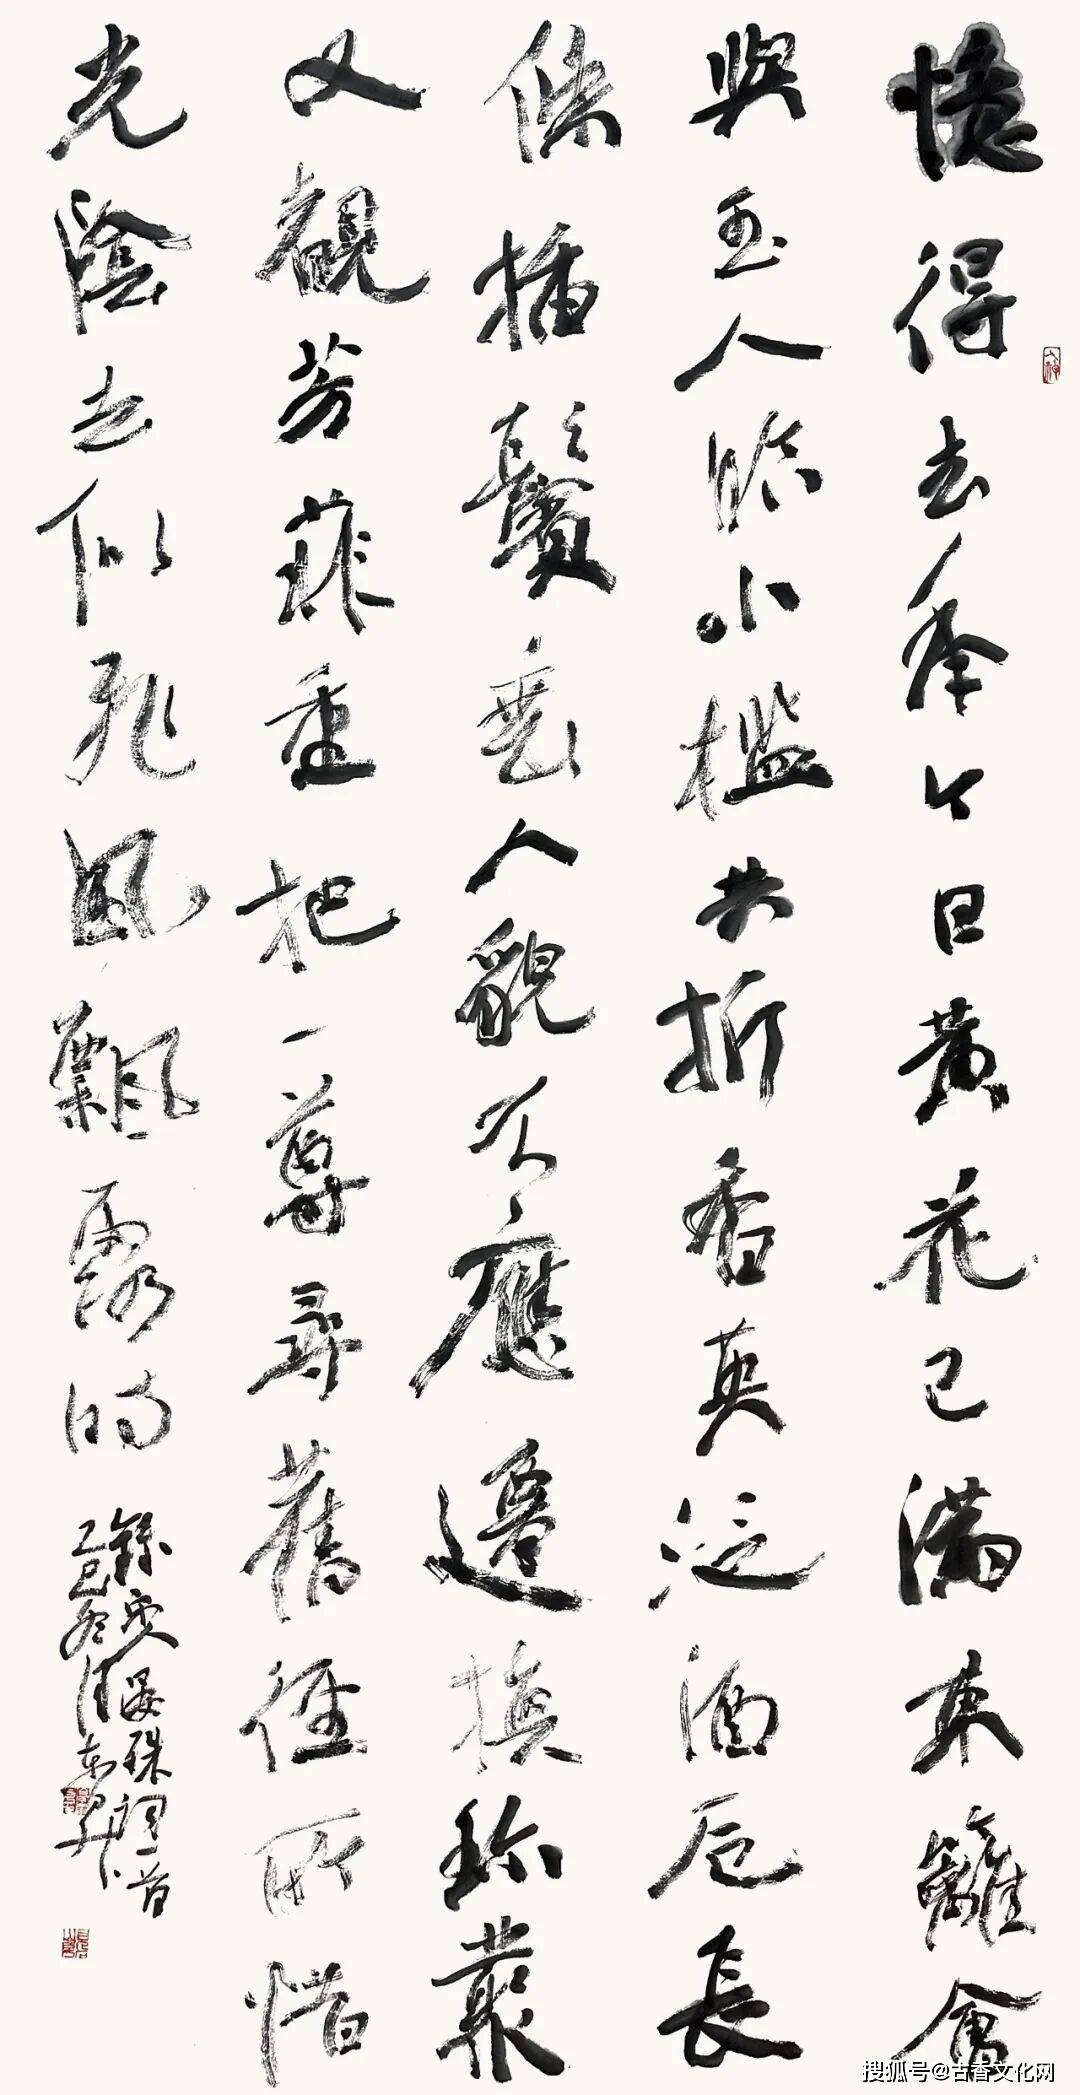 憶得去年今日黃花已滿東籬會
與玉人臨小檻共折香英泛酒卮長
條插鬢垂人貌不應遷換珍叢
又覩芳菲重把一尊尋舊徑所惜
光陰去似飛風飄露時
錄宋晏珠詞一首
乙巳冬
搜狐号@古香文化网